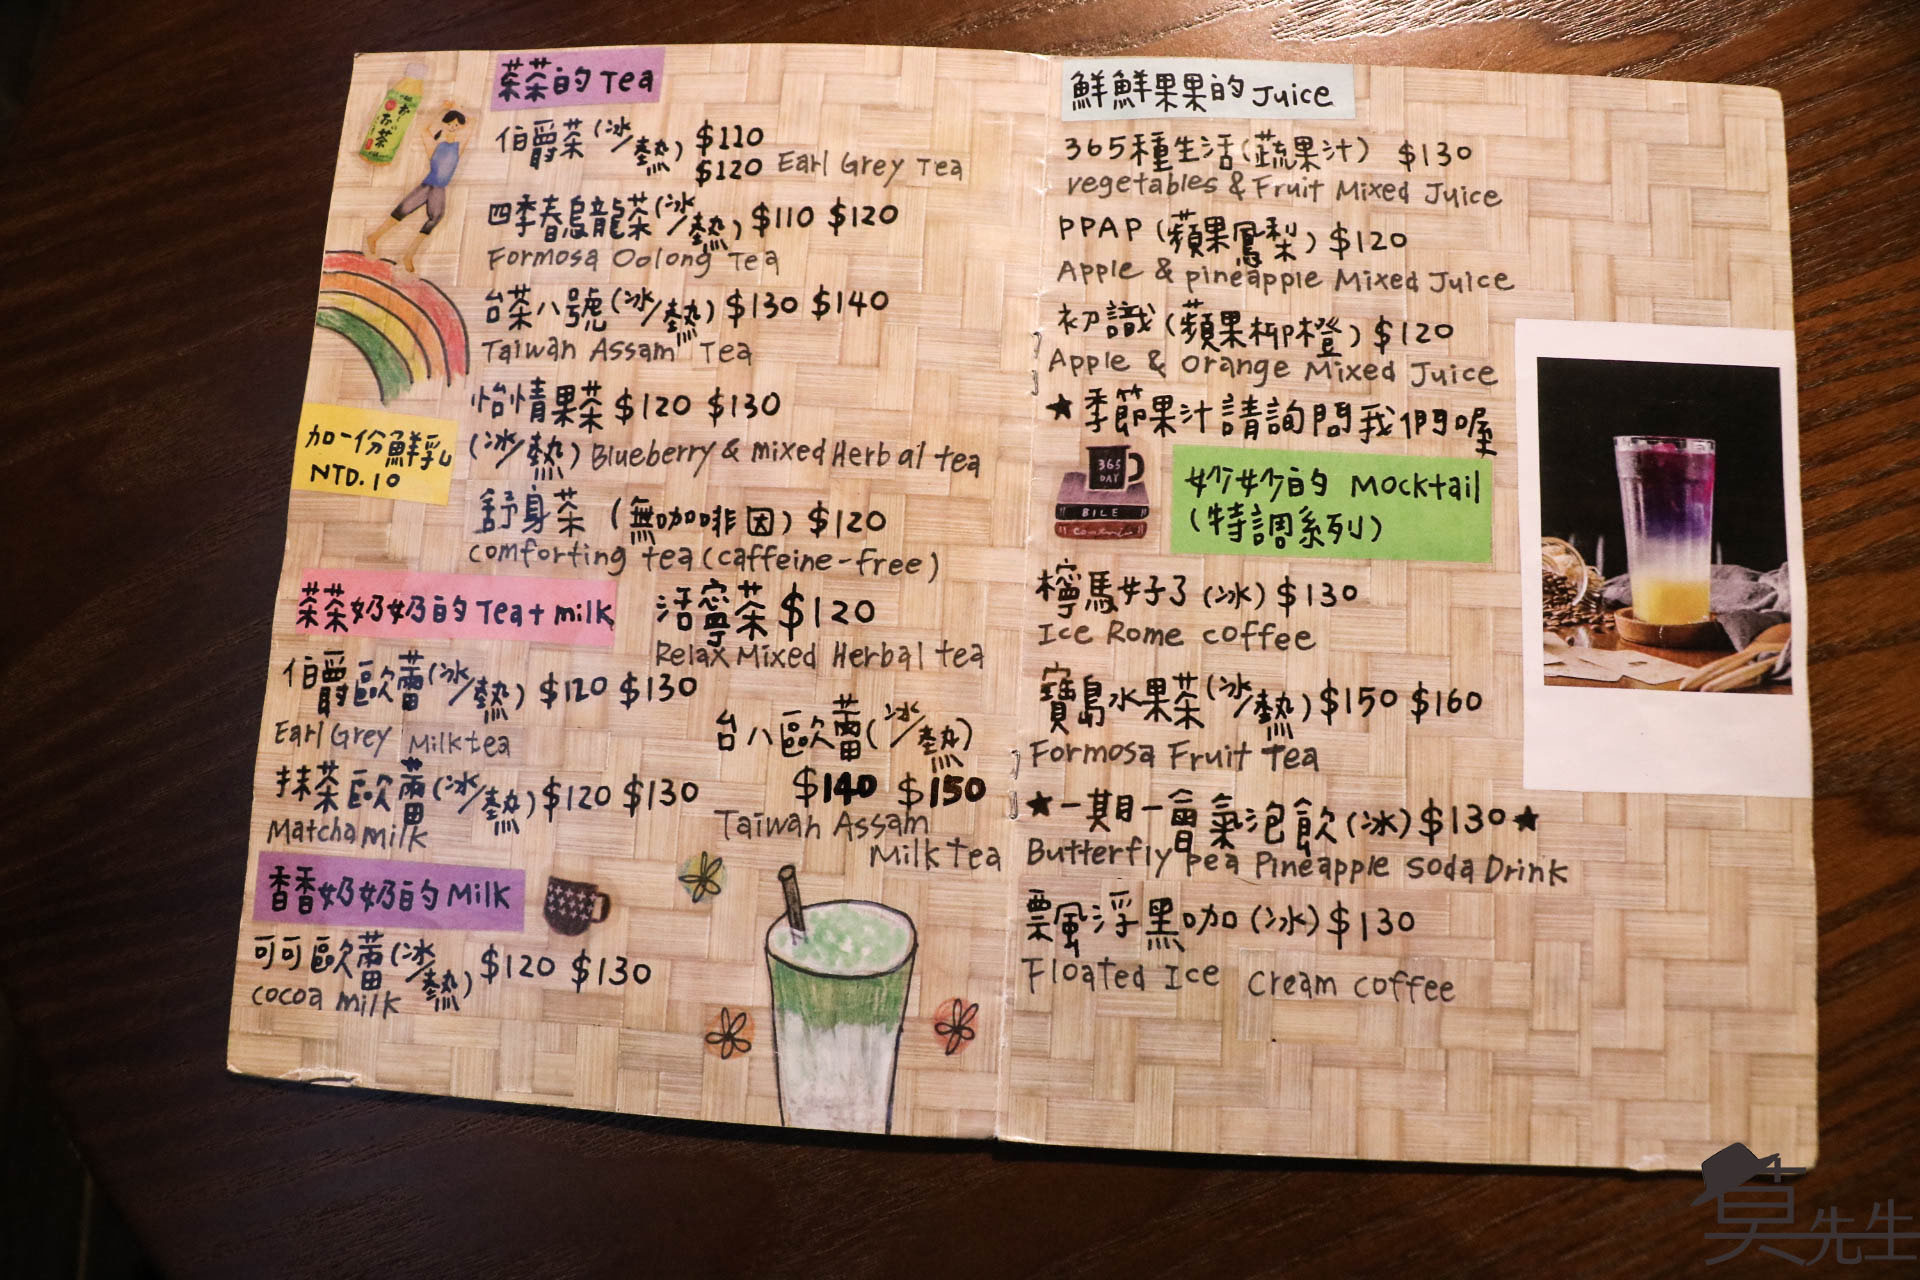 茶茶的 Tea
伯爵茶(冰/熱) $110
$120 Earl Grey Tea
四季春烏龍茶(冰/熱) $110 $120
Formosa Oolong Tea
台茶八號(冰/熱) $130 $140
Taiwan Assam Tea
怡情果茶 $120 $130
(冰/熱) Blueberry & mixed Herbal tea
加一份鮮乳
NTD.10
舒身茶 (無咖啡因) $120
comforting tea (caffeine-free)
活寧茶 $120
Relax Mixed Herbal tea
茶茶奶奶的 Tea+milk
伯爵歐蕾(冰/熱) $120 $130
Earl Grey Milktea
抹茶歐蕾(冰/熱) $120 $130
Matcha milk
台八歐蕾(冰/熱)
$140 $150
Taiwan Assam
Milk tea
香香奶奶的 Milk
可可歐蕾(冰/熱) $120 $130
cocoa milk
鮮鮮果果的 Juice
365種生活(蔬果汁) $130
vegetables & Fruit Mixed Juice
PPAP (蘋果鳳梨) $120
Apple & pineapple Mixed Juice
初識 (蘋果柳橙) $120
Apple & orange Mixed Juice
★季節果汁請詢問我們喔
365
DAY
BILE
妙妙的 Mocktail
(特調系列)
檸馬好了 (冰) $130
Ice Rome coffee
寶島水果茶(冰/熱) $150 $160
Formosa Fruit Tea
★一期一會氣泡飲(冰) $130★
Butterfly pea Pineapple soda Drink
飄浮黑咖 (冰) $130
Floated Ice Cream coffee
莫先生